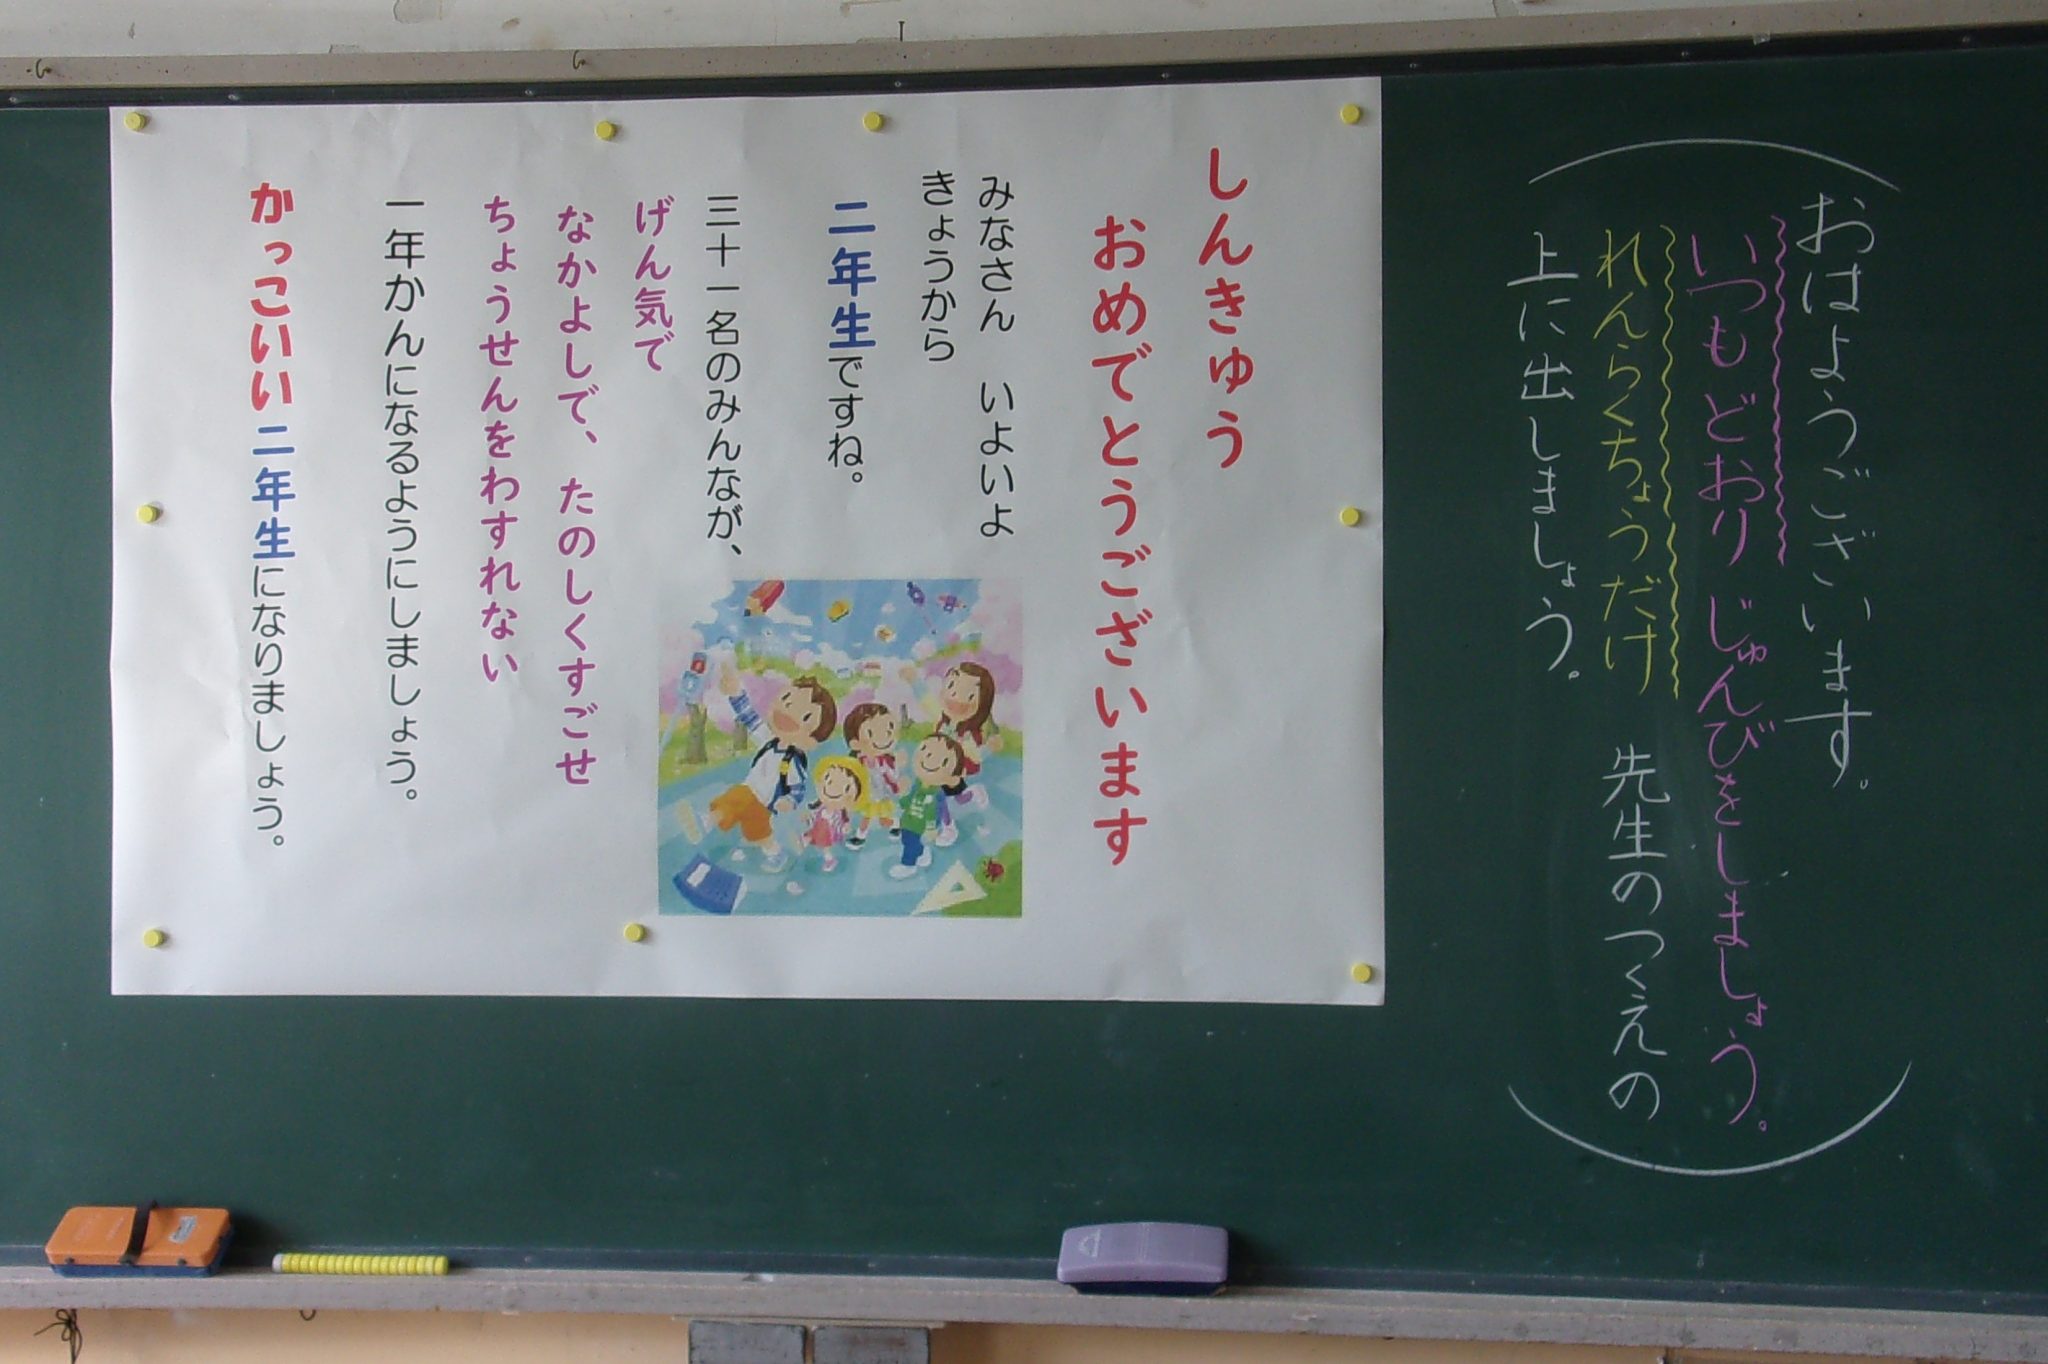 おはようございます。
いつもどおりじゅんびをしましょう。
れんらくちょうだけ 先生のつくえの
上に出しましょう。
しんきゅう
おめでとうございます
みなさん いよいよ
きょうから
二年生ですね。
三十一名のみんなが、
げん気で
なかよしで、たのしくすごせ
ちょうせんをわすれない
一年かんになるようにしましょう。
かっこいい二年生になりましょう。